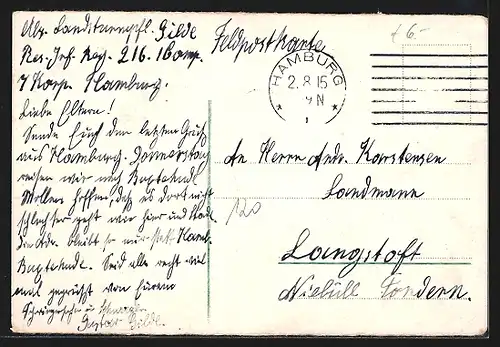 Abs. Landsturmpfl. Gilde
Res. Inf. Reg. 216. 1 Comp.
7 Korp. Hamburg.
Feldpostkarte
£ 6.-
HAMBURG
2.8.15
9 N
* 1 *
Liebe Eltern!
Sende Euch den letzten Gruß
aus Hamburg. Donnerstag
reisen wir nach
Wollen hoffen, daß es dort nicht
schlechter geht wie hier und
bleibt so nur statt
Seid alle recht viel
mal gegrüßt von Eurem
Schwiegersohn u. Schwager
Gustav Gilde.
An Herrn Andr. Karstensen
Landmann
120
Langstoft
Niebüll Tondern.